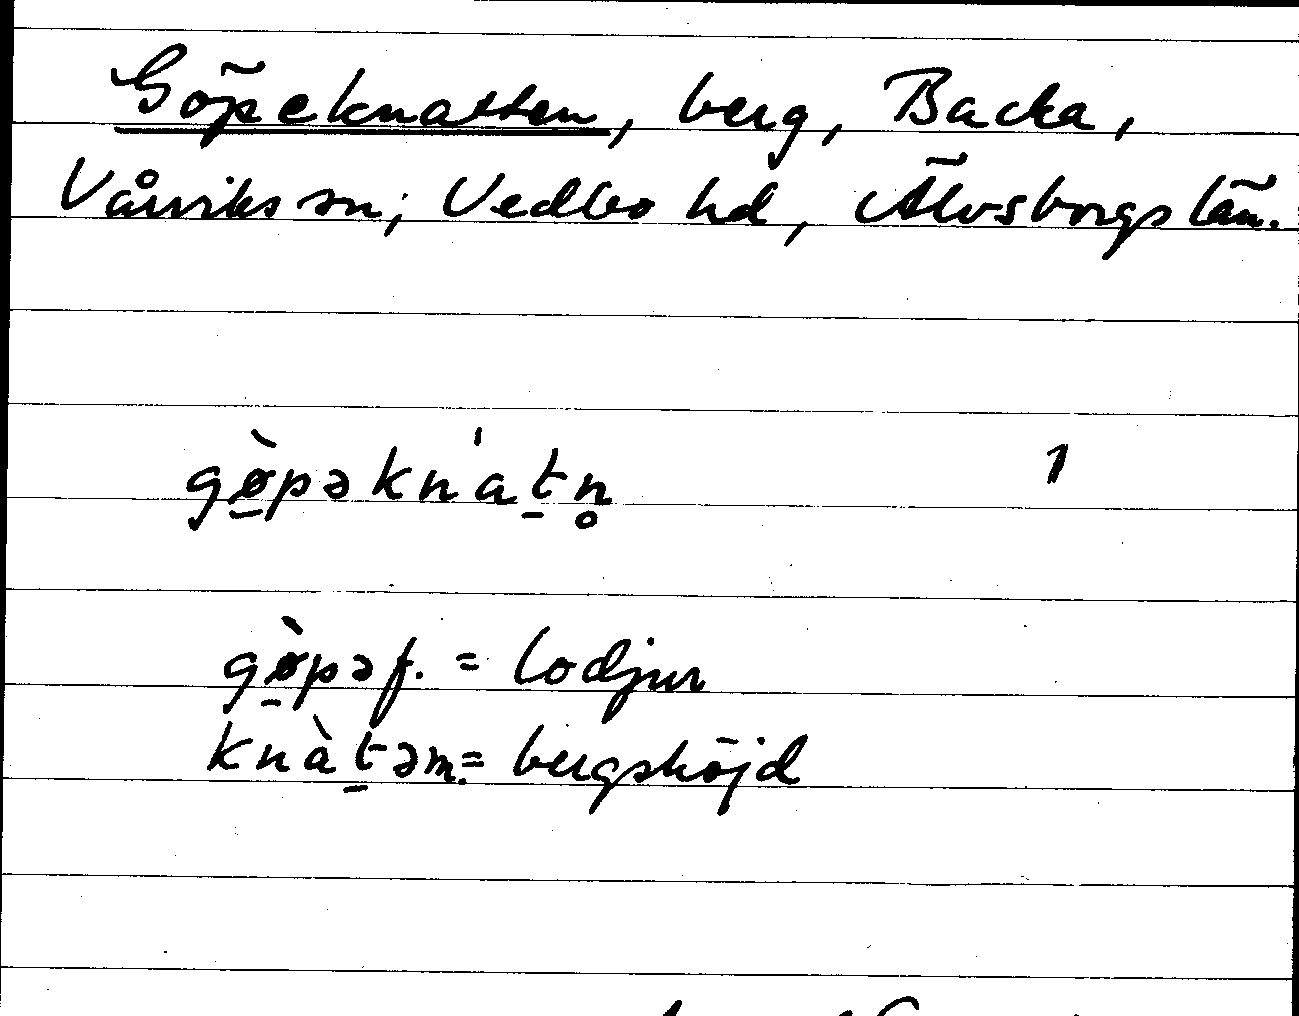 Göpeknatten, berg, Backa,
Vårviks sn, Vedbo hd, Älvsborgs län.
gø̱̀pəkn'a̍ṯn̥ 1
gø̱̀pə f. = lodjur
knàṯə m. = bergshöjd